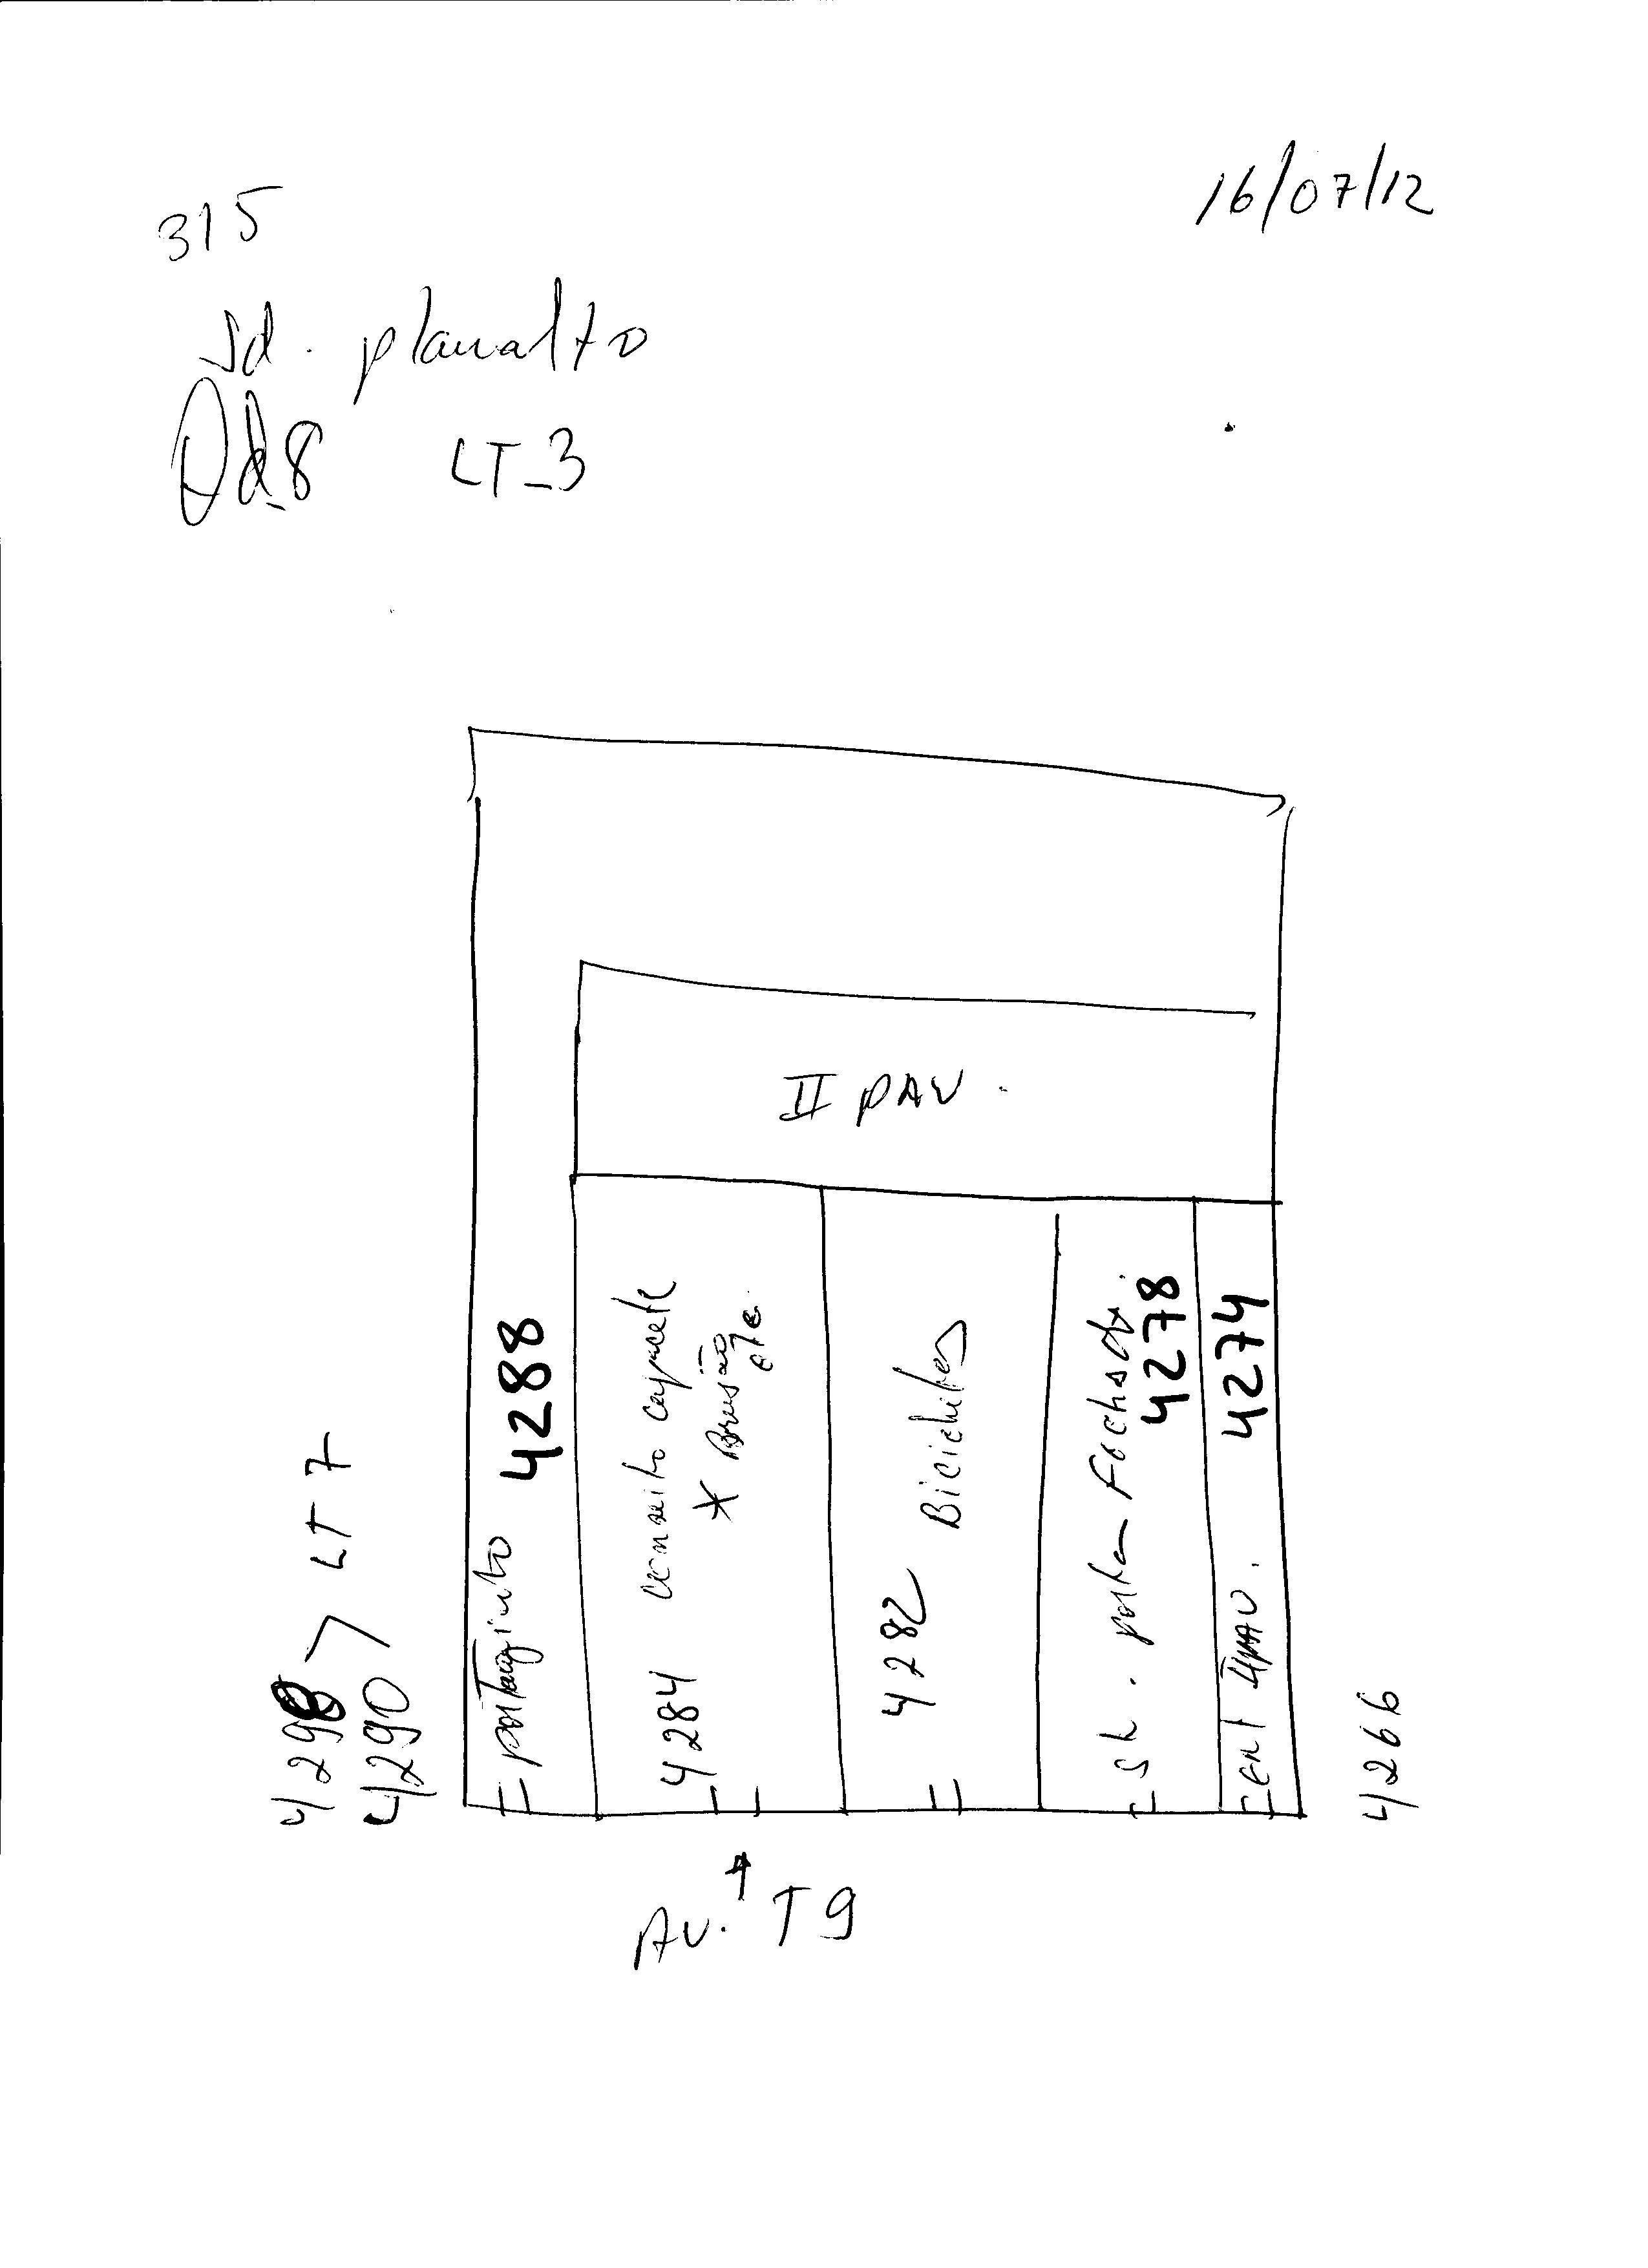 315
16/07/12
Jd. planalto
Qd-8 LT-3
II PAV.
4298 > LT 7
4290
4288
4284 conserto capacete
* Brusão etc.
4282 Bicicletas
sl. porta Fechada.
4278
ent II PAV. 4274
4266
Av. T9